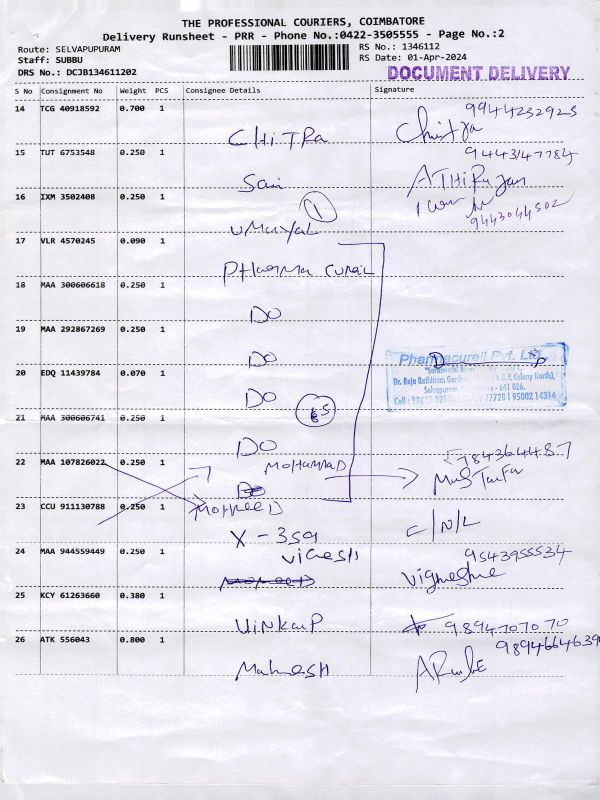 THE PROFESSIONAL COURIERS, COIMBATORE
Delivery Runsheet - PRR - Phone No.:0422-3505555 - Page No.:2
Route: SELVAPUPURAM
RS No.: 1346112
Staff: SUBBU
RS Date: 01-Apr-2024
DRS No.: DCJB134611202
DOCUMENT DELIVERY
S No Consignment No Weight PCS Consignee Details Signature
14 TCG 40918592 0.700 1
9944252925
CHITRA
15 TUT 6753548 0.250 1
9443147784
Sai
16 IXM 3502408 0.250 1
1
9443044502
UMAYAL
17 VLR 4570245 0.090 1
Pharma Cureil
18 MAA 300606618 0.250 1
DO
19 MAA 292867269 0.250 1
DO
Pharmacureil Pvt. Ltd.
20 EDQ 11439784 0.070 1
DO
65
21 MAA 300606741 0.250 1
DO
22 MAA 107826022 0.250 1
MOHAMMAD
784364487
23 CCU 911130788 0.250 1
X - 359
C/N/L
24 MAA 944559449 0.250 1
VIGNESH
9543955534
25 KCY 61263660 0.380 1
9894707070
26 ATK 556043 0.800 1
9894664639
Mahesh